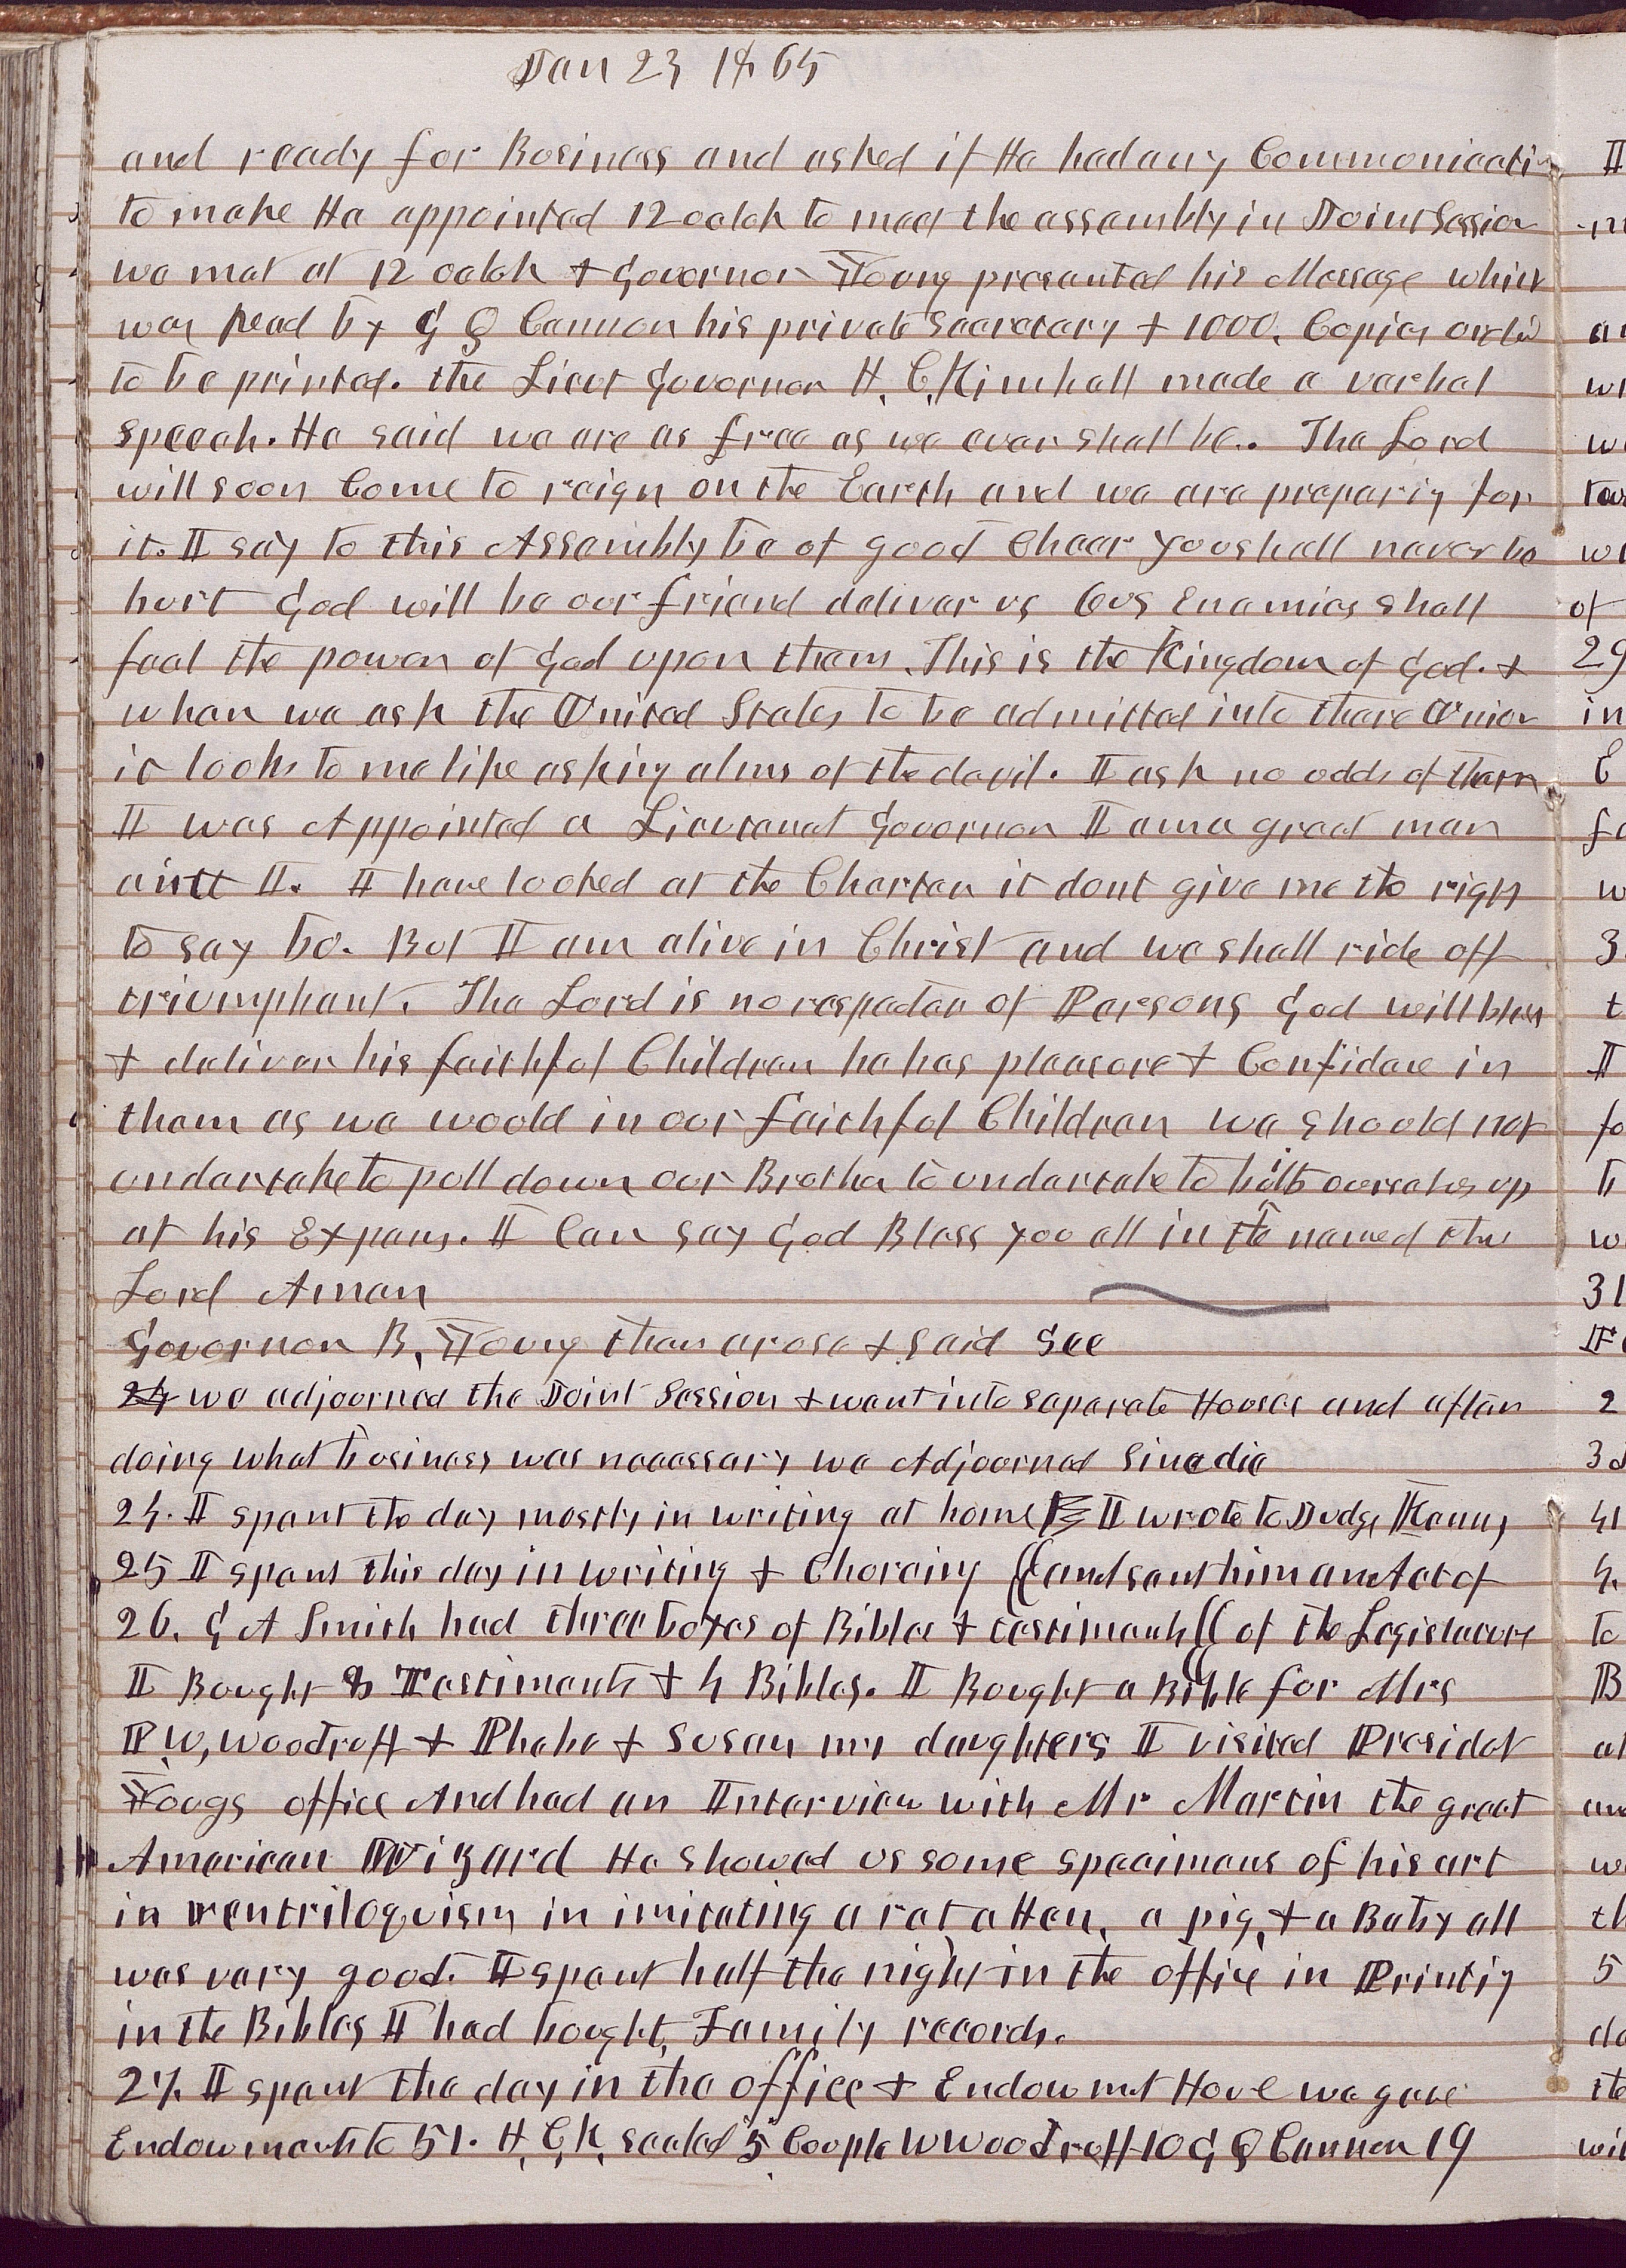 Jan 23 1865
and ready for Business and asked if He had any Communicatin
to make He appointed 12 oclok to meet the assembly in Joint Session
we met at 12 oclok & Governor Young presented his Message which
was Read by G Q Cannon his private Secretary & 1000. Copies orderd
to be printed. the Lieut Governor H. C. Kimball made a verbal
speech. He said we are as free as we ever shall be.. The Lord
will soon Come to reign on the Earth and we are preparig for
it. I say to this Assembly be of good Cheer you shall never be
hurt God will be our friend deliver us Ous Enemies shall
feel the power of God upon them. This is the Kingdom of God. &
when we ask the United States to be admitted into there Union
it looks to me like asking alms of the devil. I ask no odds of them
I was Appointed a Lieutenat Governor I am a great man
aint I. I have looked at the Charter it dont give me the right
to say bo. But I am alive in Christ and we shall ride off
triumphant. The Lord is no respecter of Persons God will bless
& deliver his faithful Children he has pleasure & Confidence in
them as we would in our faithful Children we should not
undertake to pull down our Brother to undertake to bilt ourselves up
at his Expens. I Can say God Bless you all in the name of the
Lord Amen
Governor B. Young then arose & said See
24 we adjourned the Joint Session & went into separate Houses and after
doing what business was necessary we Adjourned Sinedie
24. I spent the day mostly in writing at home I wrote to Judge Kenny
25 I spent this day in writing & Choreing ((and sent him an Act of
26. G A Smith had three boxes of Bibles & testiments (( of the Legislature
I Bought 8 Testiments & 4 Bibles. I Bought a Bible for Mrs
P W, Woodruff & Phebe & Susan my daughters I visited Presidet
Yougs office And had an Interview with Mr Martin the great
American Wizard He showed us some specimens of his art
in ventriloquism in imitating a rat a Hen, a pig, & a Baby all
was very good. I spent half the night in the office in Printig
in the Bibles I had bought, Family records.
27. I spent the day in the office & Endowmet House we gave
Endowments to 51. H, C, K, sealed 5 Couple W Woodruff 10 G Q Cannon 19